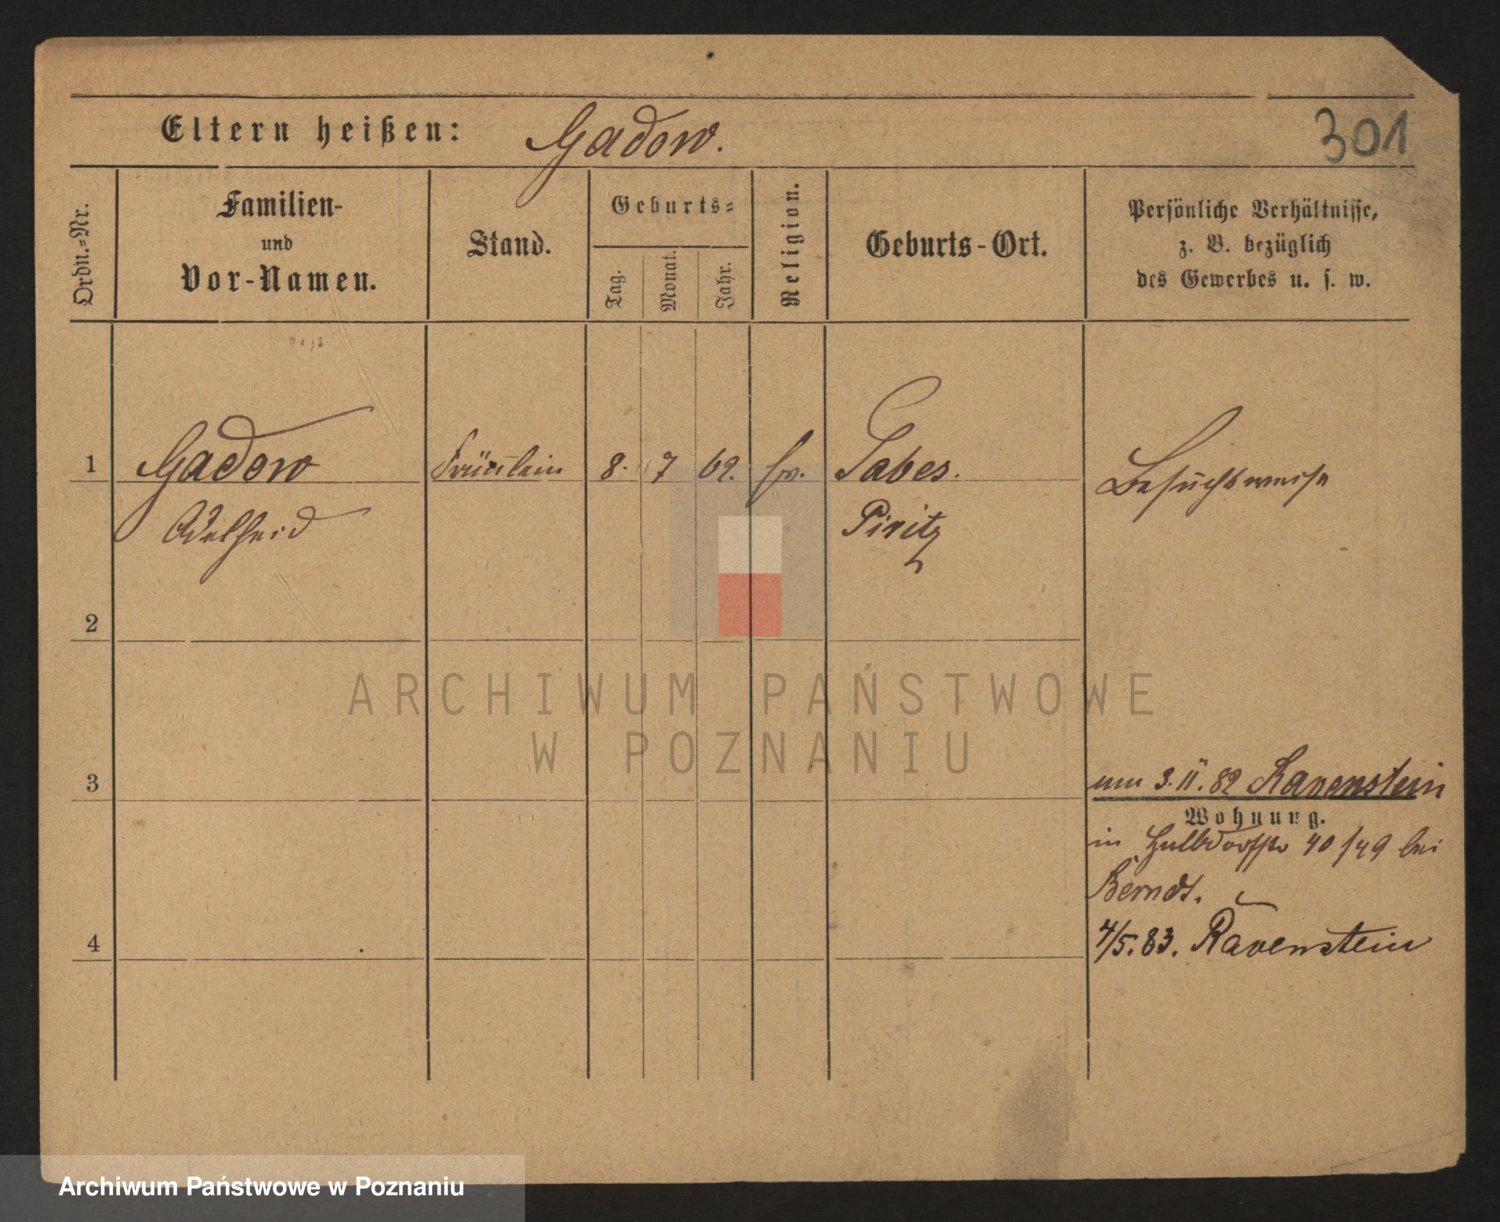 Eltern heißen: Gadow.
301
Ordn.=Nr.
Familien-
und
Vor-Namen.
Stand.
Geburts=
Tag.
Monat.
Jahr.
Religion.
Geburts-Ort.
Persönliche Verhältnisse,
z. B. bezüglich
des Gewerbes u. s. w.
1 Gadow Fräulein 8. 7 62. ev. Labes. Besuchsweise
Adelheid Piritz
2
ARCHIWUM PAŃSTWOWE
W POZNANIU
3
um 3. II. 82 Ravenstein
Wohnung.
in 40/49 bei
Berndt.
4
4/5. 83. Ravenstein
Archiwum Państwowe w Poznaniu